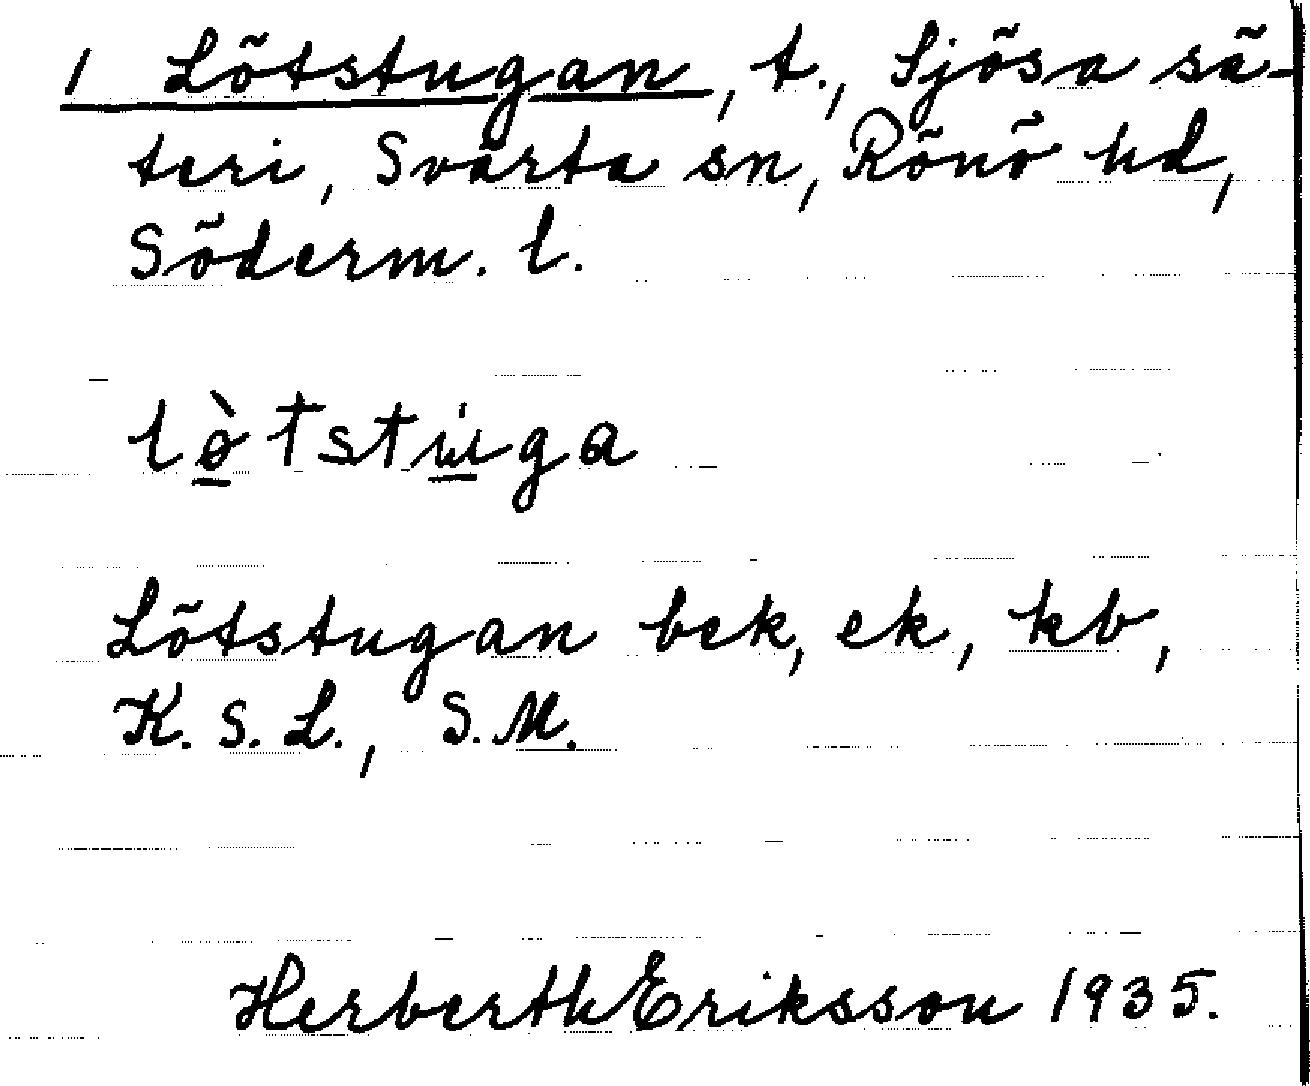 1 Lötstugan, t., Sjösa sä-
teri, Svärta sn, Rönö hd,
Söderm. l.
lò̠tstu̠ga
Lötstugan bek, ek, kb,
K. S. L., S. M.
Herberth Eriksson 1935.